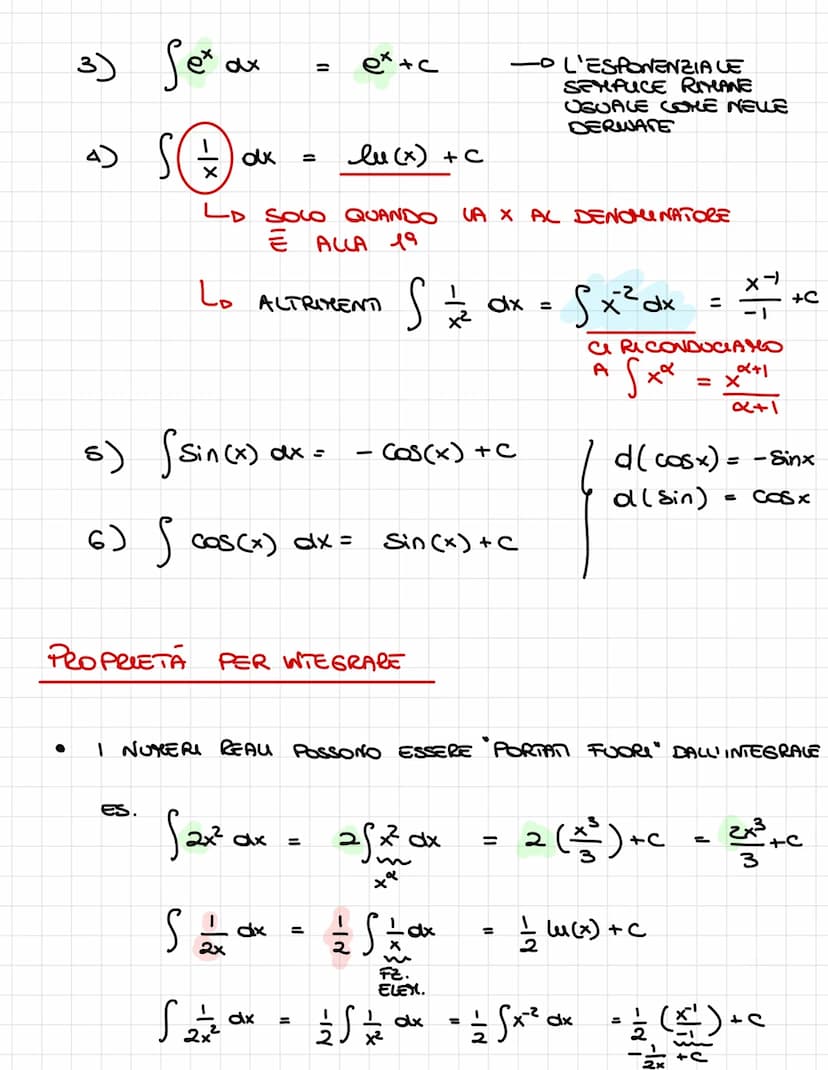 3) ∫ e^x dx = e^x + c → L'ESPONENZIALE
SEMPLICE RIMANE
UGUALE COME NELLE
DERIVATE
4) ∫ 1/x dx = ln(x) + c
↳ SOLO QUANDO LA X AL DENOMINATORE
È ALLA 1ª
↳ ALTRIMENTI ∫ 1/x² dx = ∫ x^-2 dx = x^-1/-1 + c
CI RICONDUCIAMO
A ∫ x^α = x^(α+1)/(α+1)
5) ∫ sin(x) dx = - cos(x) + c
d(cosx) = - sinx
d(sin) = cosx
6) ∫ cos(x) dx = sin(x) + c
PROPRIETÀ PER INTEGRARE
• I NUMERI REALI POSSONO ESSERE "PORTATI FUORI" DALL'INTEGRALE
ES.
∫ 2x² dx = 2 ∫ x² dx = 2 (x³/3) + c = 2x³/3 + c
x^α
∫ 1/2x dx = 1/2 ∫ 1/x dx = 1/2 ln(x) + c
FZ.
ELEM.
∫ 1/2x² dx = 1/2 ∫ 1/x² dx = 1/2 ∫ x^-2 dx = 1/2 (x^-1/-1) + c
- 1/2x + c